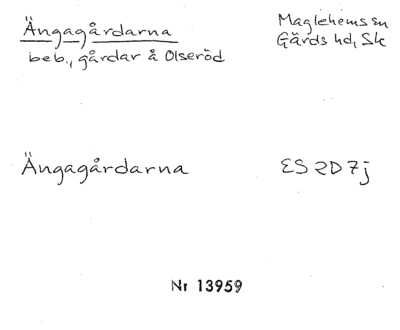 Ängagårdarna
beb., gårdar å Olseröd
Maglehems sn
Gärds hd, Sk
Ängagårdarna
ES 2D 7j
Nr 13959